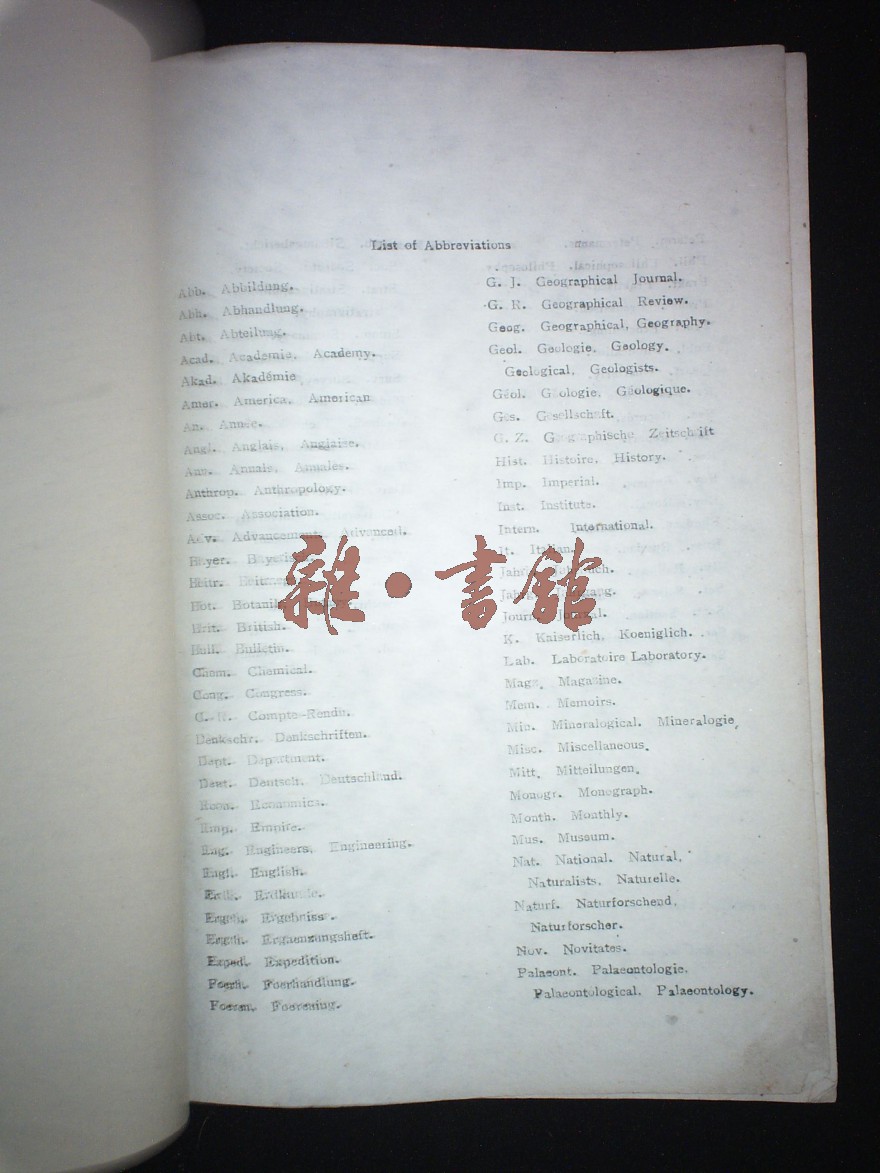 List of Abbreviations
Abb. Abbildung.
Abh. Abhandlung.
Abt. Abteilung.
Acad. Academie, Academy.
Akad. Akadémie
Amer. America, American
An. Année.
Angl. Anglais, Anglaise.
Ann. Annals, Annales.
Anthrop. Anthropology.
Assoc. Association.
Adv. Advancement, Advanced.
Bayer.
Beitr.
Bot.
Brit. British.
Bull. Bulletin.
Chem. Chemical.
Cong. Congress.
C.-R. Compte-Rendu.
Denkschr. Denkschriften.
Dept. Department.
Deut. Deutsch, Deutschland.
Econ. Economics.
Emp. Empire.
Eng. Engineers, Engineering.
Engl. English.
Erdk. Erdkunde.
Ergeb. Ergebnisse.
Ergh. Ergaenzungsheft.
Exped. Expedition.
Foerh. Foerhandlung.
Foeren. Foerening.
G. J. Geographical Journal.
G. R. Geographical Review.
Geog. Geographical, Geography.
Geol. Geologie, Geology.
Geological, Geologists.
Géol. Géologie, Géologique.
Ges. Gesellschaft.
G. Z. Geographische Zeitschrift
Hist. Histoire, History.
Imp. Imperial.
Inst. Institute.
Intern. International.
It. Italian.
Journ. Journal.
K. Kaiserlich, Koeniglich.
Lab. Laboratoire Laboratory.
Mag. Magazine.
Mem. Memoirs.
Min. Mineralogical. Mineralogie,
Misc. Miscellaneous.
Mitt. Mitteilungen.
Monogr. Monograph.
Month. Monthly.
Mus. Museum.
Nat. National. Natural,
Naturalists, Naturelle.
Naturf. Naturforschend,
Naturforscher.
Nov. Novitates.
Palaeont. Palaeontologie.
Palaeontological. Palaeontology.
雜·書館